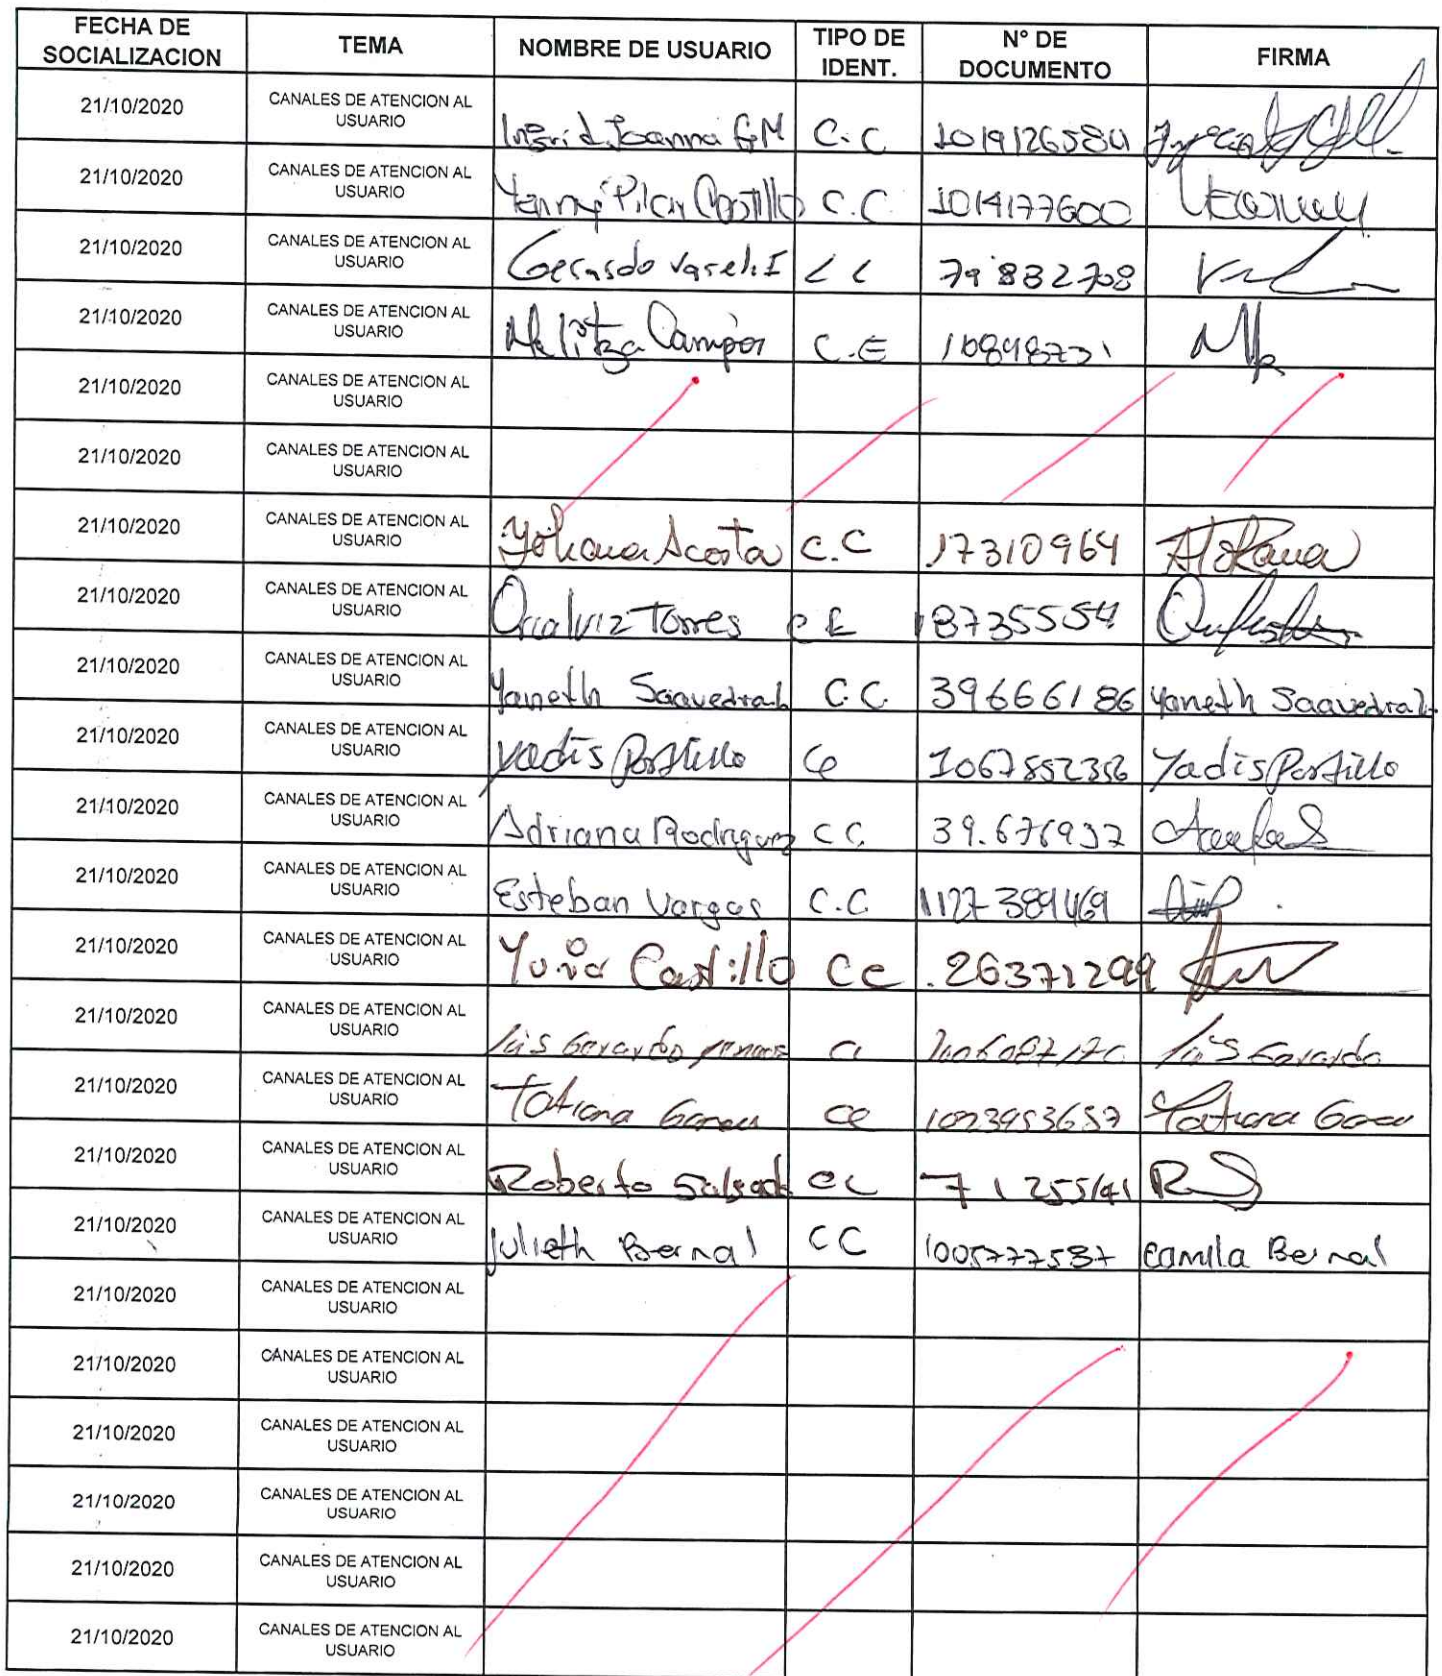 FECHA DE SOCIALIZACION TEMA NOMBRE DE USUARIO TIPO DE IDENT. N° DE DOCUMENTO FIRMA
21/10/2020 CANALES DE ATENCION AL USUARIO Ingrid Joanna GM C.C 1019126584
21/10/2020 CANALES DE ATENCION AL USUARIO Yenny Pilar Castillo C.C 1014177600
21/10/2020 CANALES DE ATENCION AL USUARIO Gerardo Varela I C C 79 832708
21/10/2020 CANALES DE ATENCION AL USUARIO Melitza Campos C.E
21/10/2020 CANALES DE ATENCION AL USUARIO
21/10/2020 CANALES DE ATENCION AL USUARIO
21/10/2020 CANALES DE ATENCION AL USUARIO Yohana Acosta C.C 17310964
21/10/2020 CANALES DE ATENCION AL USUARIO Torres 18735554
21/10/2020 CANALES DE ATENCION AL USUARIO Yaneth Saavedra C.C. 39666186 Yaneth Saavedra
21/10/2020 CANALES DE ATENCION AL USUARIO Yadis Portillo 1067852356 Yadis Portillo
21/10/2020 CANALES DE ATENCION AL USUARIO Adriana Rodriguez CC. 39.676937
21/10/2020 CANALES DE ATENCION AL USUARIO Esteban Vargas C.C. 1127389469
21/10/2020 CANALES DE ATENCION AL USUARIO Castillo CC 26371299
21/10/2020 CANALES DE ATENCION AL USUARIO Luis Gerardo Luis Gerardo
21/10/2020 CANALES DE ATENCION AL USUARIO Tatiana CC 1023953657 Tatiana
21/10/2020 CANALES DE ATENCION AL USUARIO Roberto Salgado CC 71255141 RS
21/10/2020 CANALES DE ATENCION AL USUARIO Julieth Bernal CC 1005777587 Camila Bernal
21/10/2020 CANALES DE ATENCION AL USUARIO
21/10/2020 CANALES DE ATENCION AL USUARIO
21/10/2020 CANALES DE ATENCION AL USUARIO
21/10/2020 CANALES DE ATENCION AL USUARIO
21/10/2020 CANALES DE ATENCION AL USUARIO
21/10/2020 CANALES DE ATENCION AL USUARIO